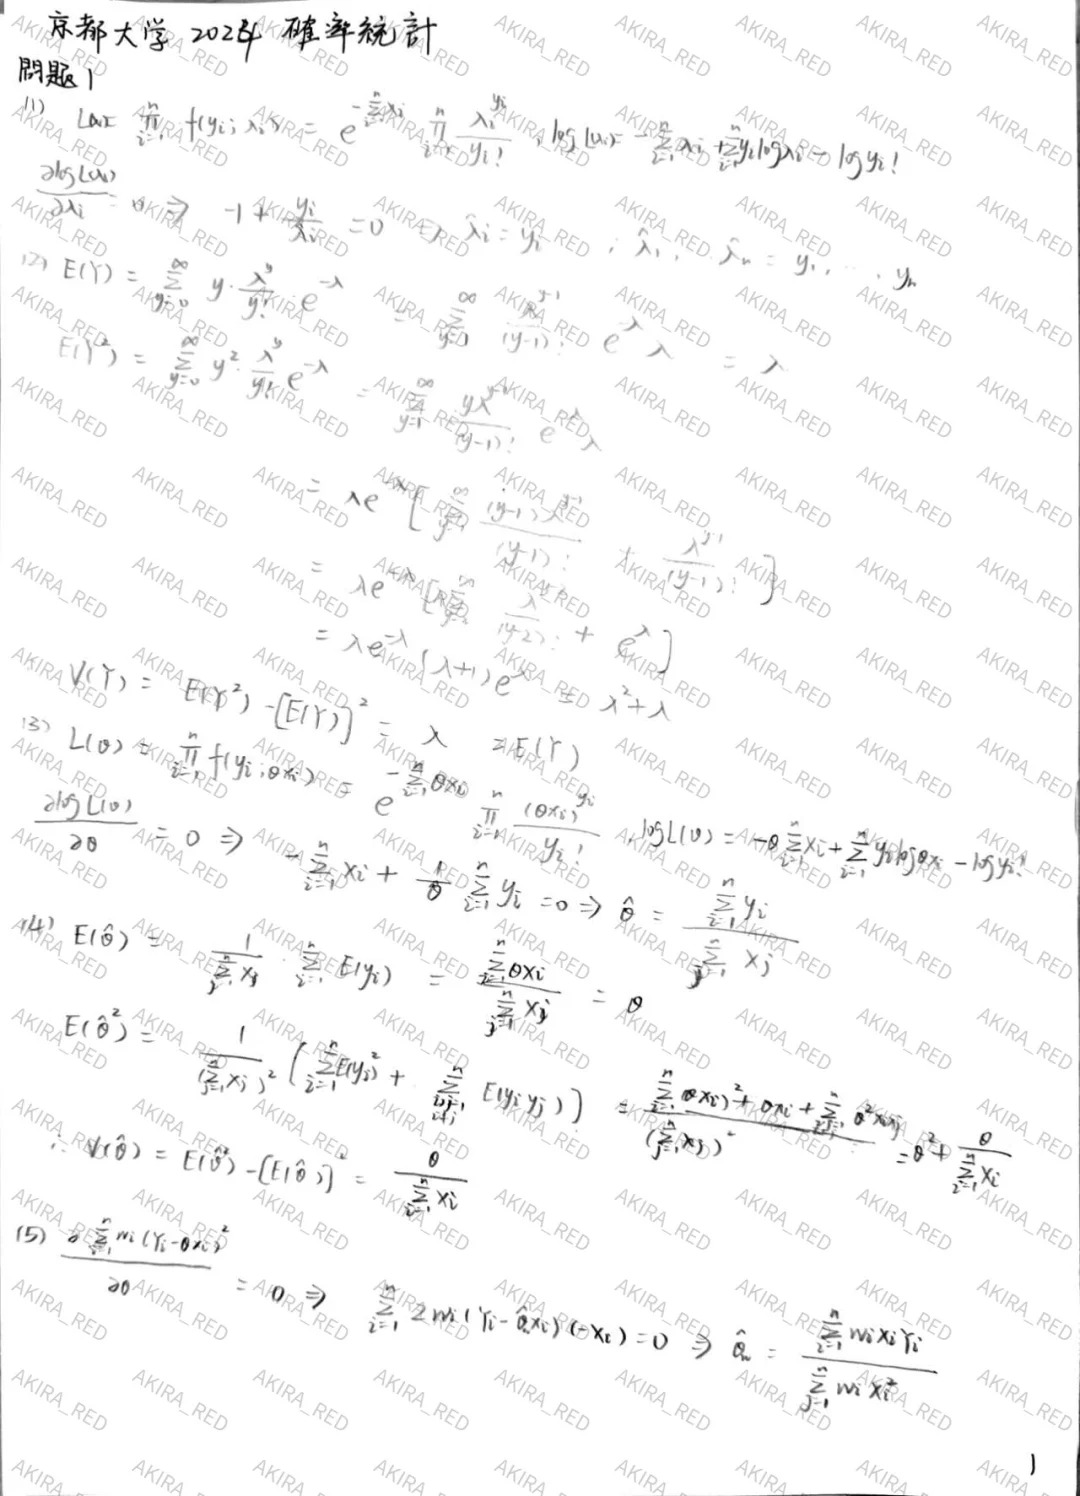 京都大学 2023年 確率統計
問題1
(1) L(λi) = ∏_{i=1}^{n} f(yi; λi) = e^{-∑_{i=1}^{n} λi} ∏_{i=1}^{n} λi^{yi}/yi! , log L(λi) = -∑_{i=1}^{n} λi + ∑_{i=1}^{n} yi log λi - log yi!
∂log L(λi)/∂λi = 0 ⇒ -1 + yi/λi = 0 ⇒ λ̂i = yi ; λ̂1, … λ̂n = y1, …, yn
(2) E(Y) = ∑_{y=0}^{∞} y · λ^y/y! e^{-λ} = ∑_{y=0}^{∞} λ^{y-1}/(y-1)! e^{-λ} λ = λ
E(Y²) = ∑_{y=0}^{∞} y² · λ^y/y! e^{-λ} = ∑_{y=1}^{∞} yλ^{y-1}/(y-1)! e^{-λ} λ
= λe^{-λ} [ ∑_{y=1}^{∞} (y-1)λ^{y-1}/(y-1)! + λ^{y-1}/(y-1)! ]
= λe^{-λ} [ ∑ λ/(y-2)! + e^λ ]
= λe^{-λ} (λ+1) e^λ = λ²+λ
V(Y) = E(Y²) - [E(Y)]² = λ = E(Y)
(3) L(θ) = ∏_{i=1}^{n} f(yi; θxi) = e^{-∑_{i=1}^{n} θxi} ∏_{i=1}^{n} (θxi)^{yi}/yi! , log L(θ) = -θ∑_{i=1}^{n} xi + ∑_{i=1}^{n} yi log θxi - log yi!
∂log L(θ)/∂θ = 0 ⇒ -∑_{i=1}^{n} xi + 1/θ ∑_{i=1}^{n} yi = 0 ⇒ θ̂ = ∑_{i=1}^{n} yi / ∑_{j=1}^{n} xj
(4) E(θ̂) = 1/∑_{j=1}^{n} xj · ∑_{i=1}^{n} E(yi) = ∑_{i=1}^{n} θxi / ∑_{j=1}^{n} xj = θ
E(θ̂²) = 1/(∑_{j=1}^{n} xj)² [ ∑_{i=1}^{n} E(yi²) + ∑_{i≠j} E(yi yj) ] = (∑_{i=1}^{n} (θxi)² + θxi + ∑ θ²xixj) / (∑_{j=1}^{n} xj)² = θ² + θ/∑_{i=1}^{n} xi
∴ V(θ̂) = E(θ̂²) - [E(θ̂)]² = θ/∑_{i=1}^{n} xi
(5) ∂∑_{i=1}^{n} wi(Yi - θxi)²/∂θ = 0 ⇒ ∑_{i=1}^{n} 2wi(Yi - θ̂w xi)(-xi) = 0 ⇒ θ̂w = ∑_{i=1}^{n} wi xi Yi / ∑_{j=1}^{n} wi xi²
1